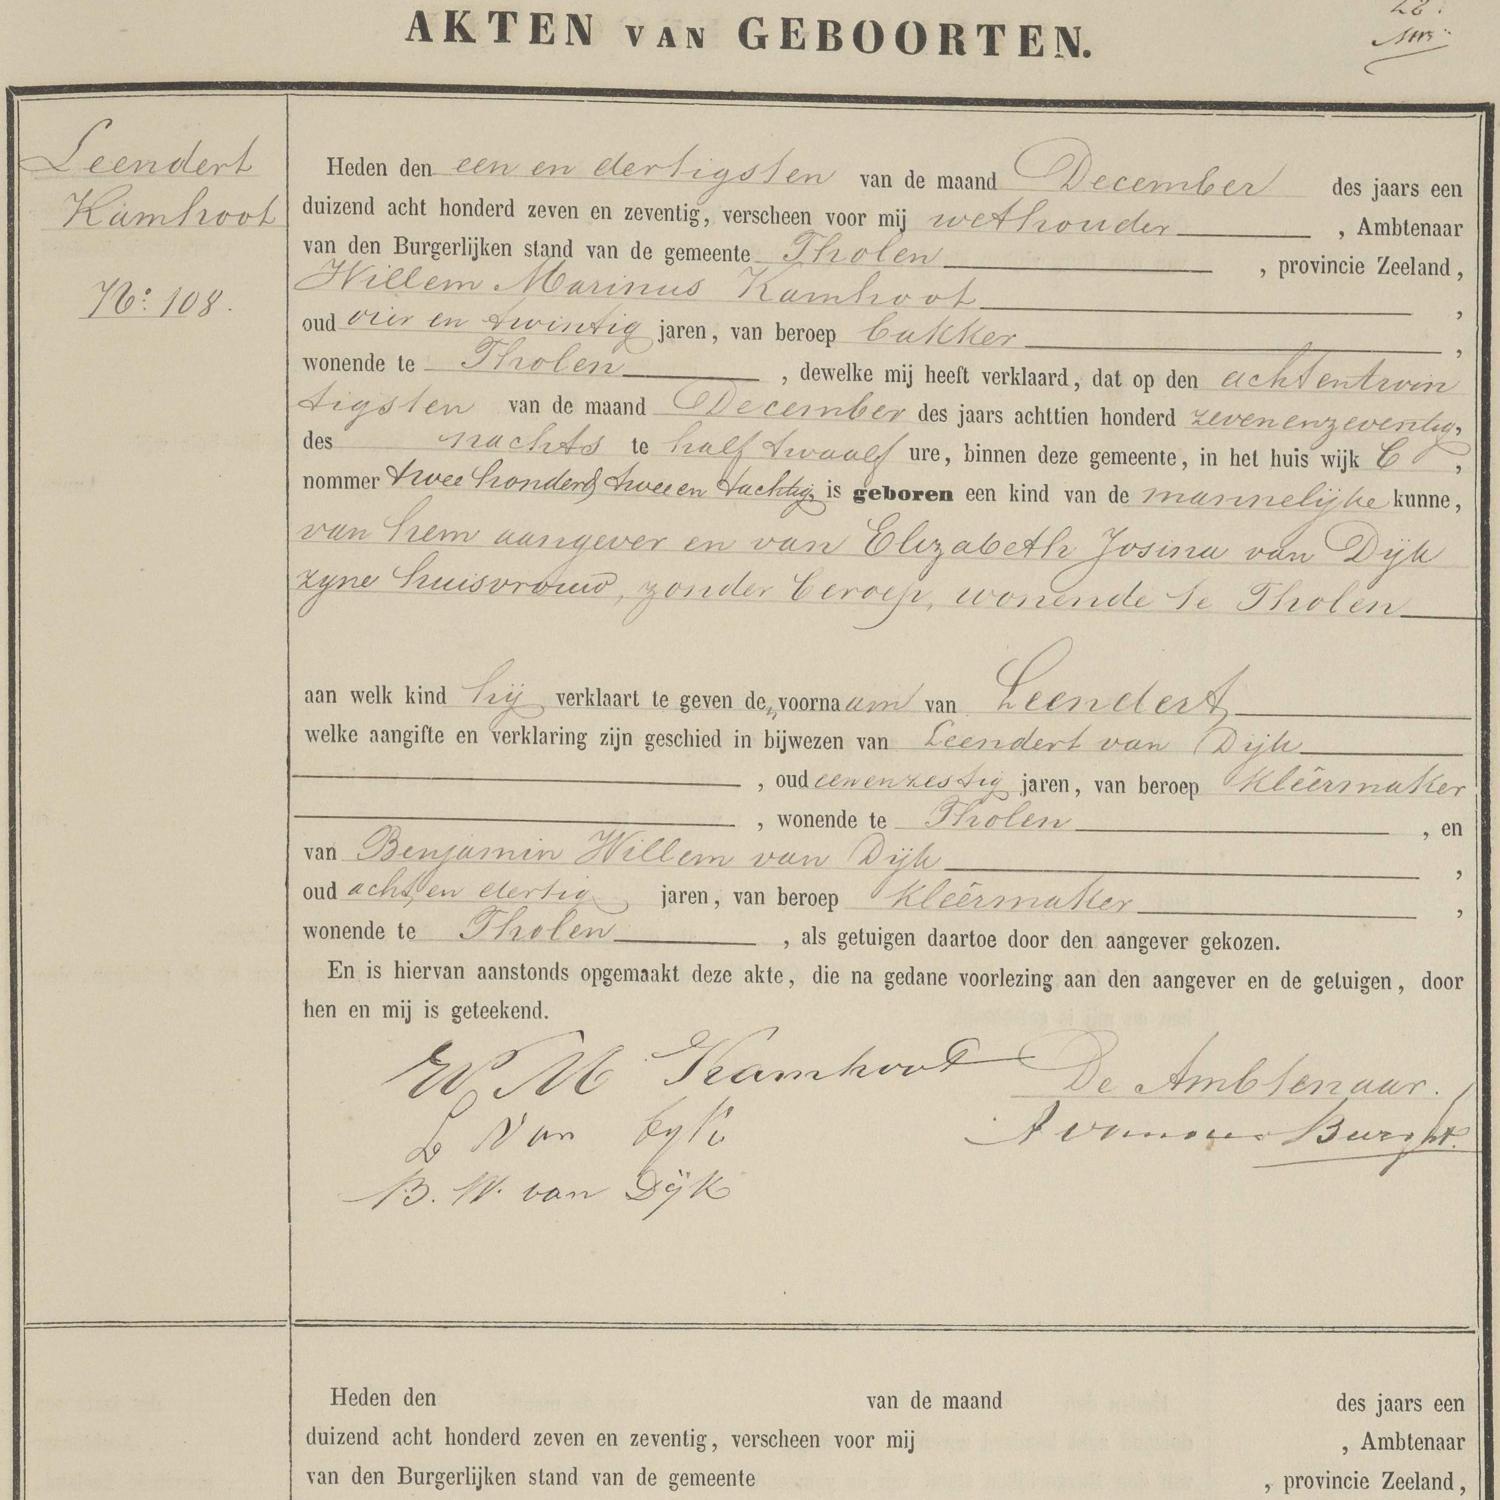 AKTEN VAN GEBOORTEN.
28.
Leendert
Kamhoot
No: 108.
Heden den een en dertigsten van de maand December des jaars een
duizend acht honderd zeven en zeventig, verscheen voor mij wethouder , Ambtenaar
van den Burgerlijken stand van de gemeente Tholen , provincie Zeeland,
Willem Marinus Kamhoot ,
oud vier en twintig jaren, van beroep bakker ,
wonende te Tholen , dewelke mij heeft verklaard, dat op den achtentwin
tigsten van de maand December des jaars achttien honderd zevenenzeventig,
des nachts te half twaalf ure, binnen deze gemeente, in het huis wijk C ,
nommer twee honderd twee en tachtig, is geboren een kind van de mannelijke kunne,
van hem aangever en van Elizabeth Josina van Dijk
zyne huisvrouw, zonder beroep, wonende te Tholen
aan welk kind hij verklaart te geven den voornaam van Leendert
welke aangifte en verklaring zijn geschied in bijwezen van Leendert van Dijk
, oud eenenzestig jaren, van beroep kleêrmaker
, wonende te Tholen , en
van Benjamin Willem van Dijk ,
oud acht en dertig jaren, van beroep kleêrmaker ,
wonende te Tholen , als getuigen daartoe door den aangever gekozen.
En is hiervan aanstonds opgemaakt deze akte, die na gedane voorlezing aan den aangever en de getuigen, door
hen en mij is geteekend.
W M Kamhoot De Ambtenaar.
L van Dyk
B. W. van Dijk
Heden den van de maand des jaars een
duizend acht honderd zeven en zeventig, verscheen voor mij , Ambtenaar
van den Burgerlijken stand van de gemeente , provincie Zeeland,